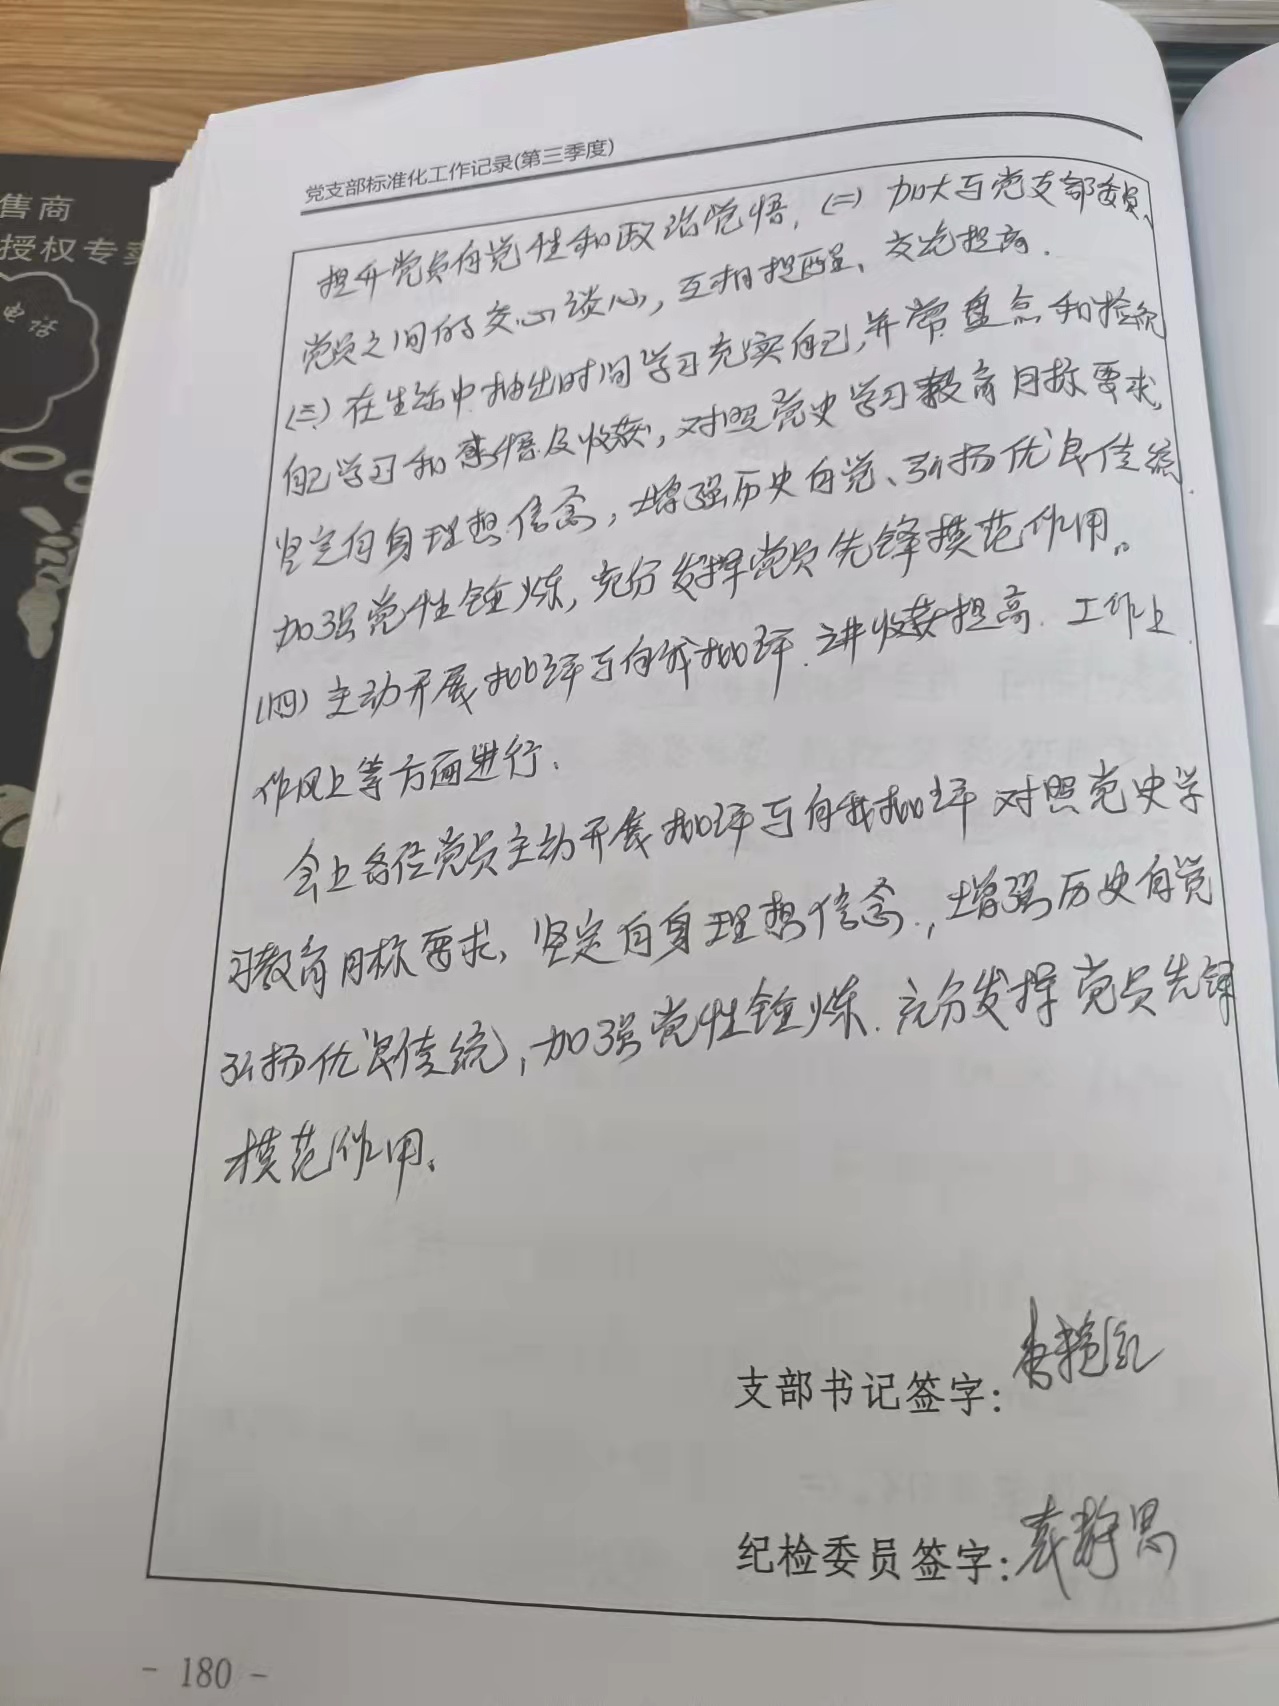 售商
授权专卖
电话
党支部标准化工作记录(第三季度)
提升党员自觉性和政治觉悟,(二)加大与党支部委员、
党员之间的交心谈心,互相提醒、交流提高.
(三)在生活中抽出时间学习充实自己,并常盘点和检视
自己学习和感悟及收获,对照党史学习教育目标要求,
坚定自身理想信念,增强历史自觉、弘扬优良传统.
加强党性锤炼,充分发挥党员先锋模范作用。
(四)主动开展批评与自我批评.讲收获提高.工作上.
作风上等方面进行.
会上各位党员主动开展批评与自我批评 对照党史学
习教育目标要求,坚定自身理想信念.,增强历史自觉
弘扬优良传统,加强党性锤炼.充分发挥党员先锋
模范作用.
支部书记签字:
纪检委员签字:袁静思
- 180 -